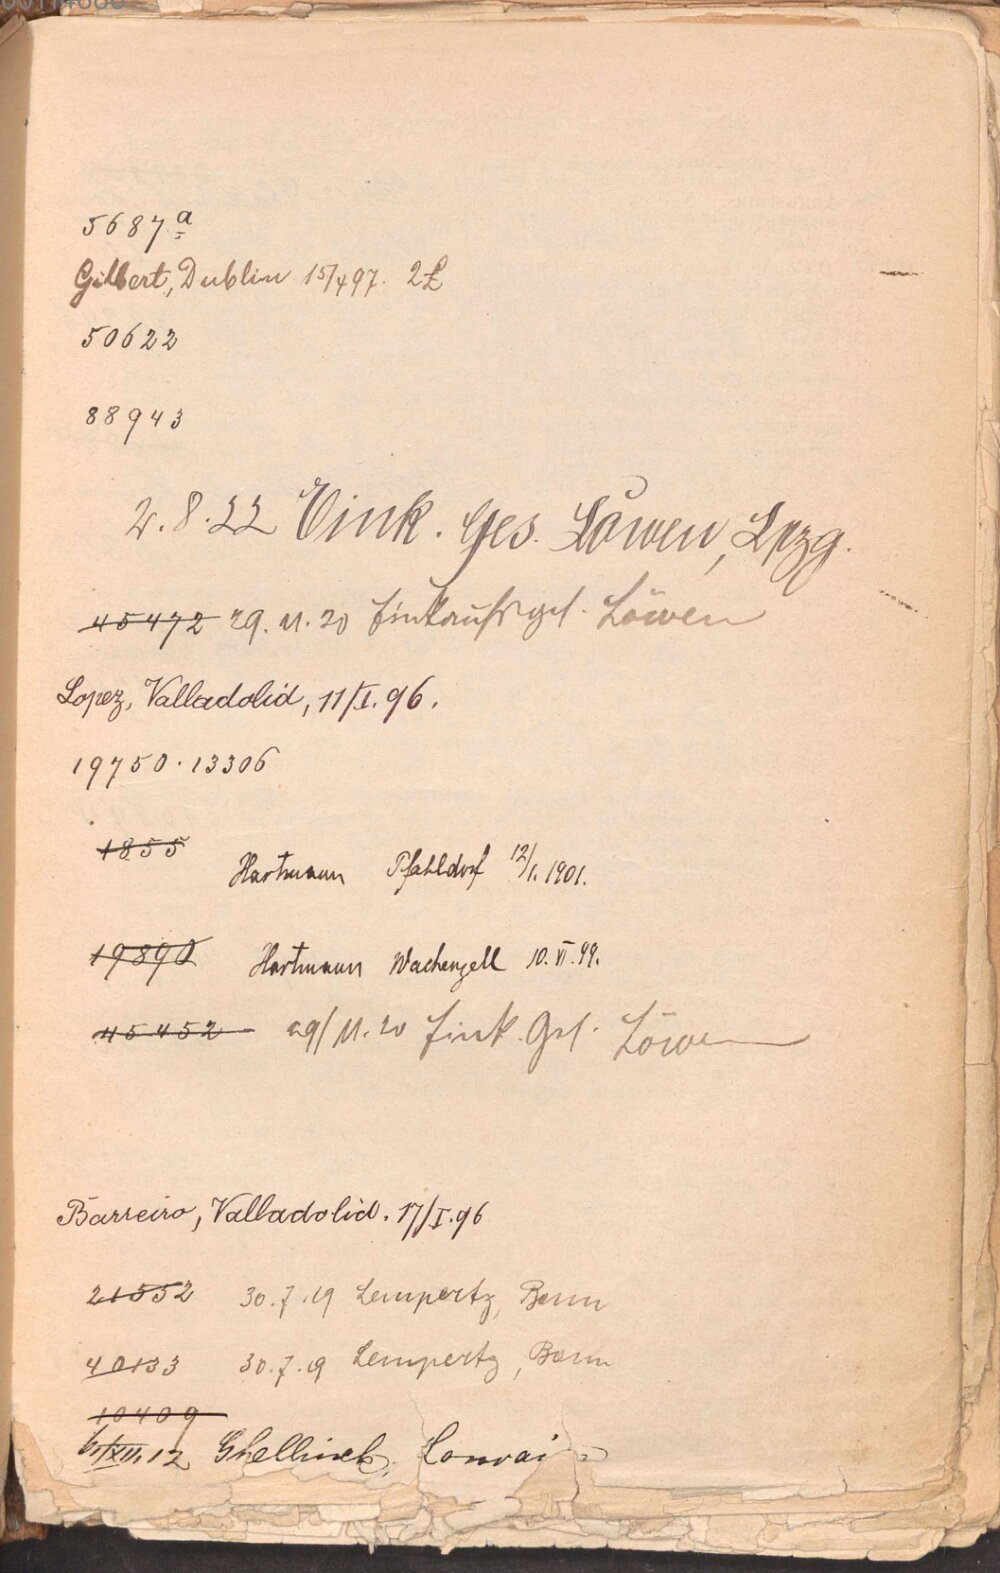 5687 a
Gilbert, Dublin 15/4 97. 2£
50622
88943
2.8.22 Eink. Ges. Löwen, Lpzg.
45472 29.11.20 Einkaufsges. Löwen
Lopez, Valladolid, 11/I.96.
19750 · 13306
1855 Hartmann Pfahldorf 12/1.1901.
19890 Hartmann Wachenzell 10.VI.99.
45452 29/11.20 Eink. Ges. Löwen
Barreiro, Valladolid. 17/I.96
21552 30.7.19 Lempertz, Bonn
40133 30.7.19 Lempertz, Bonn
10409
XII.12 Ghellinck, Louvain